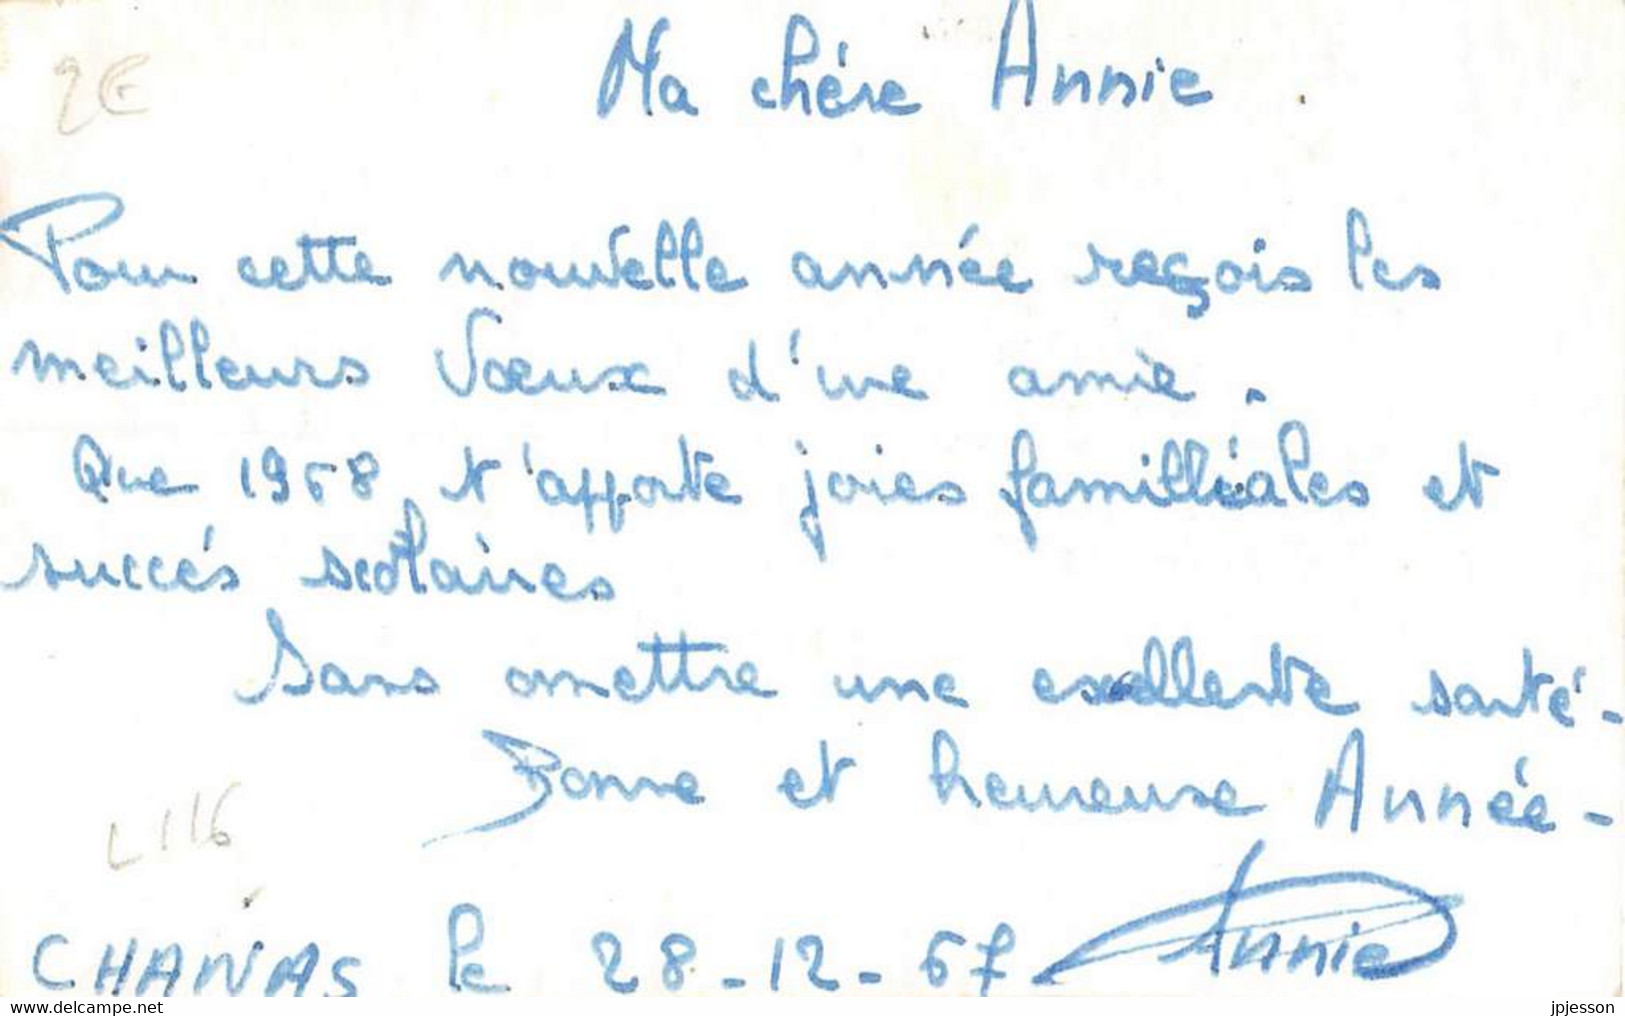 2€
Ma chére Annie.
Pour cette nouvelle année reçois les
meilleurs Vœux d'une amie.
Que 1968 t'apporte joies familliales et
succés scolaires
Sans omettre une exellente santé-
Bonne et heureuse Année-
L116
CHANAS le 28-12-67 Annie
www.delcampe.net
jpjesson